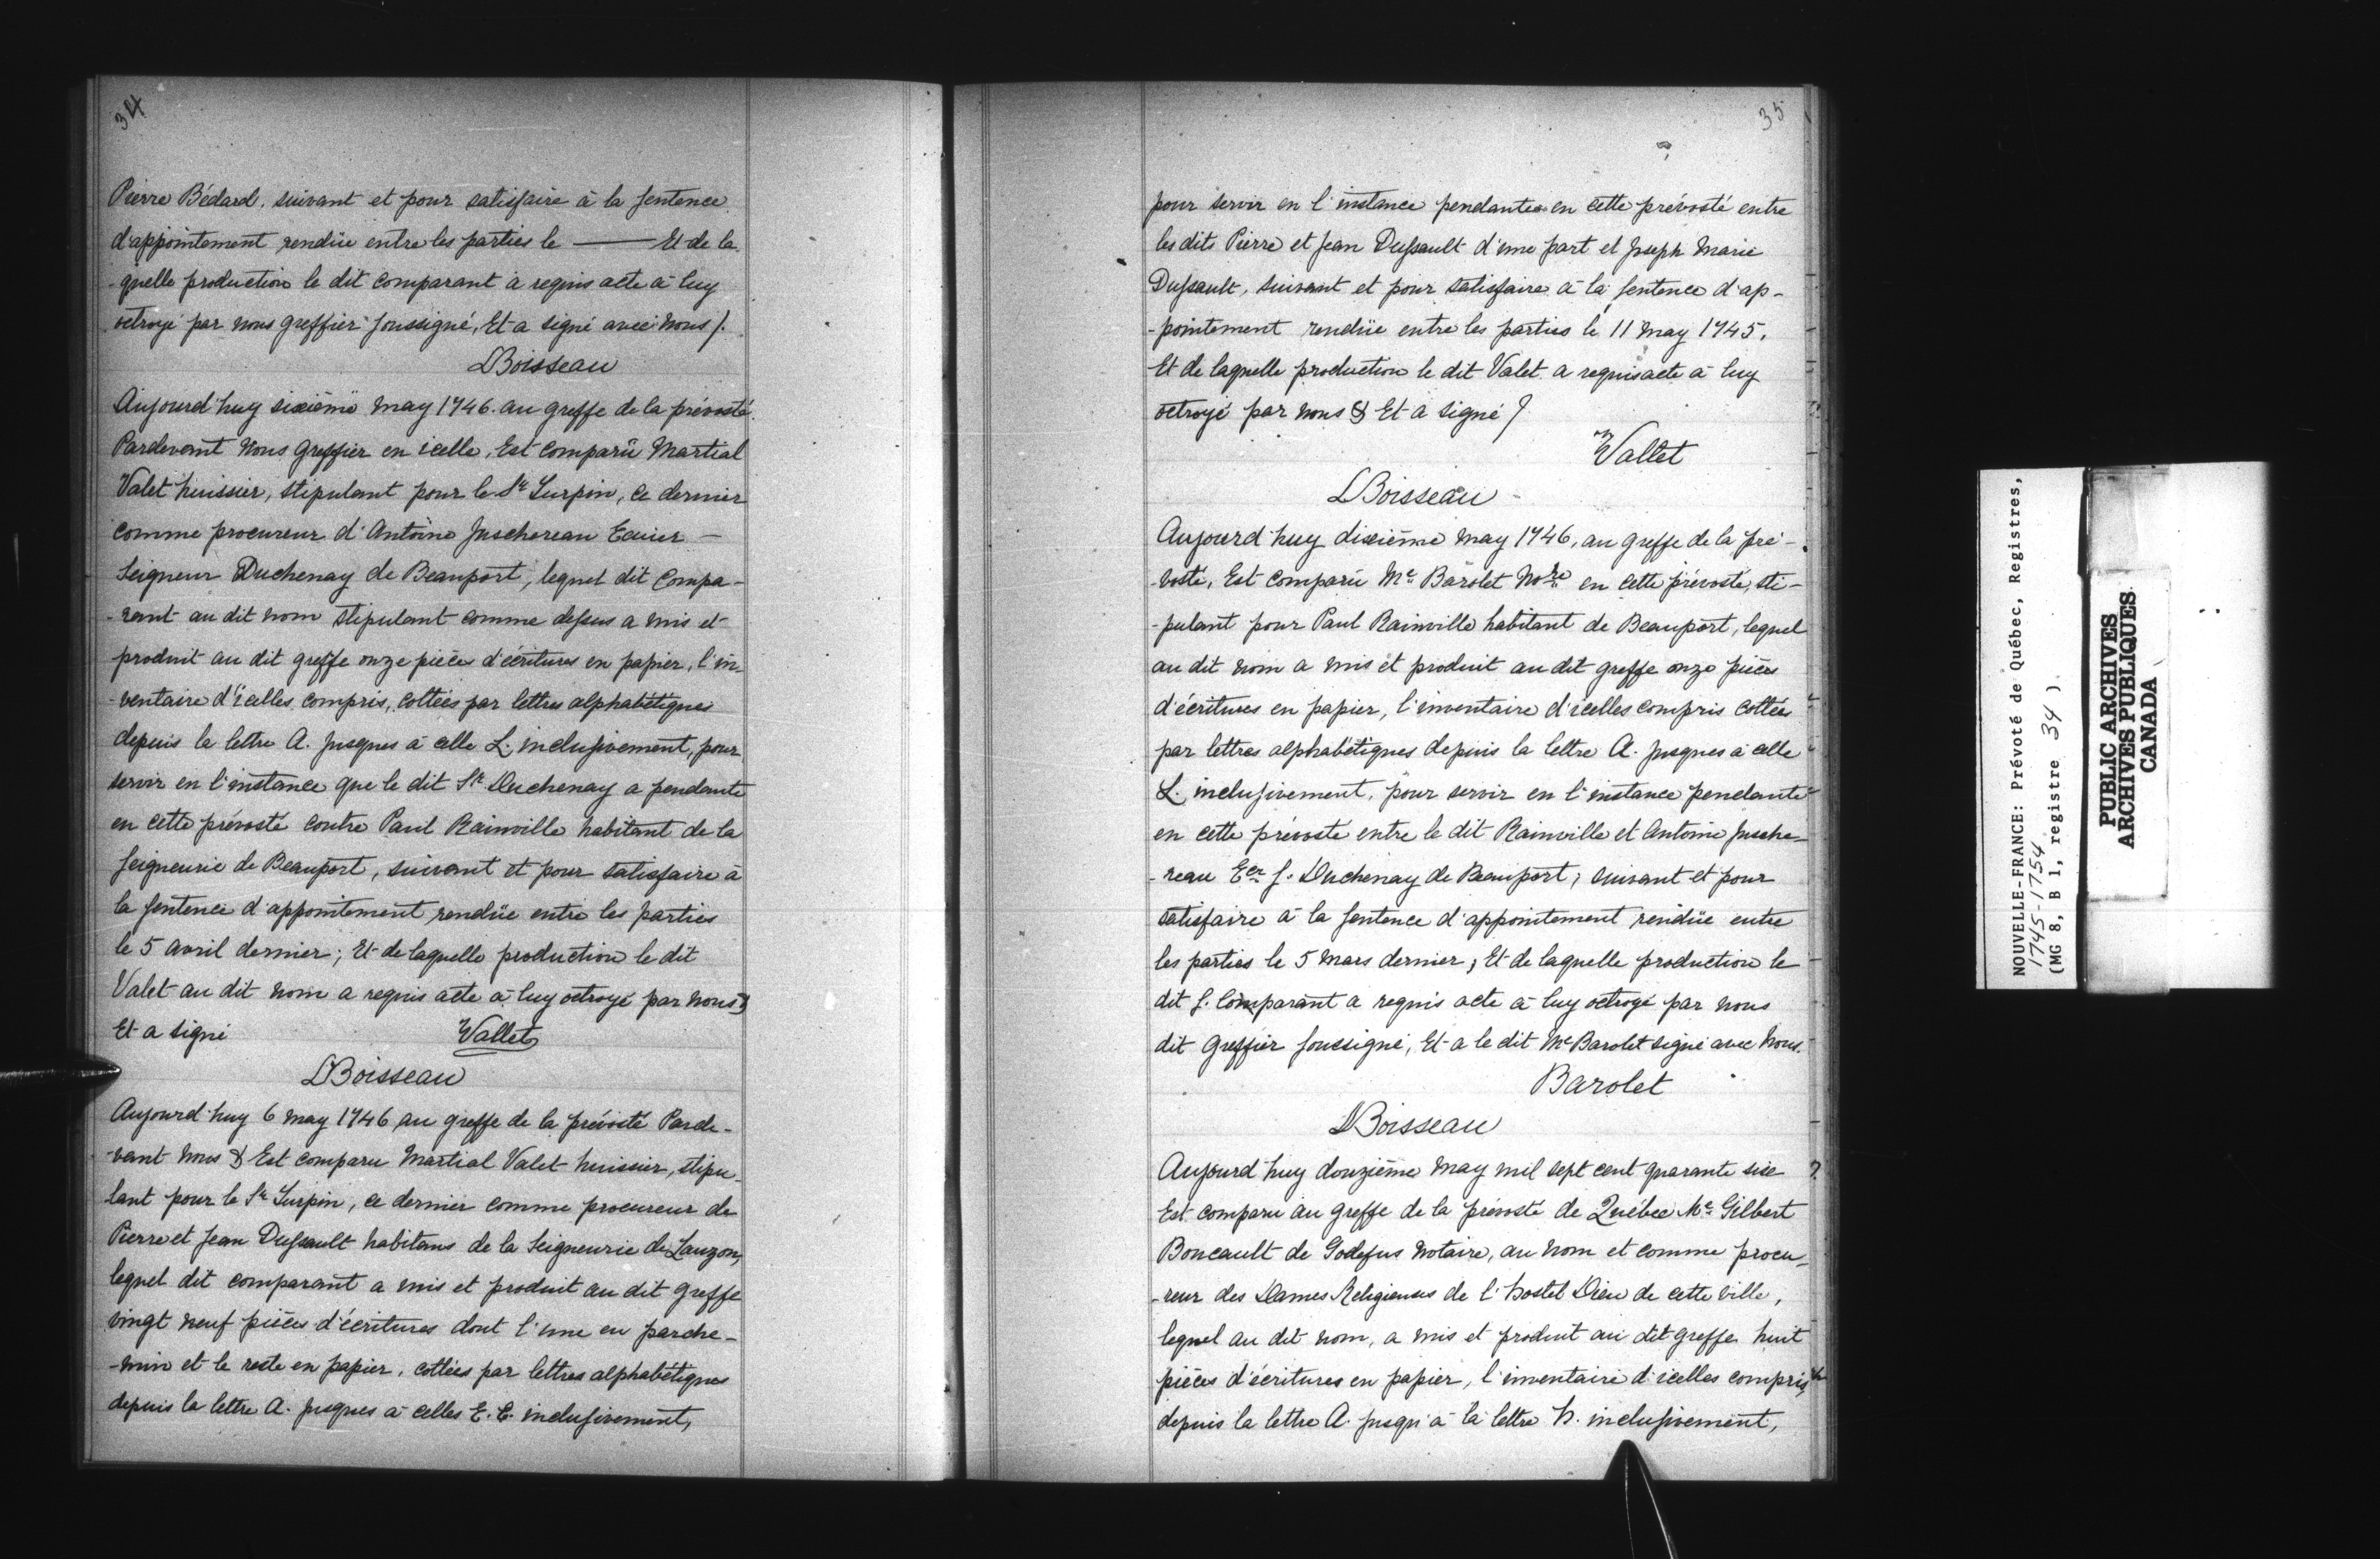 34
Pierre Bédard, suivant et pour satisfaire à la sentence
d'appointement rendüe entre les parties le ——— Et de la-
-quelle production le dit comparant a requis acte à luy
octroyé par nous greffier soussigné, Et a signé avec nous /.
LBoisseau
Aujourd'huy sixiéme may 1746. au greffe de la prévosté.
Pardevant nous greffier en icelle, Est comparü Martial
Valet huissier, stipulant pour le Sr. Turpin, ce dernier
comme procureur d'Antoine Juschereau Ecuier —
Seigneur Duchenay de Beauport, lequel dit Compa-
-rant au dit nom stipulant comme dessus a mis et
produit au dit greffe onze piéces d'écritures en papier, l'in-
-ventaire d'icelles compris, cottées par lettres alphabétiques
depuis la lettre A. jusques à celle L. inclusivement, pour
servir en l'instance que le dit Sr. Duchenay a pendante
en cette prévosté contre Paul Rainville habitant de la
seigneurie de Beauport, suivant et pour satisfaire à
la sentence d'appointement rendüe entre les parties
le 5 avril dernier; Et de laquelle production le dit
Valet au dit nom a requis acte à luy octroyé par nous &
Et a signé Vallet
LBoisseau
Aujourd'huy 6 may 1746 au greffe de la prévosté Parde-
-vant nous & Est comparu Martial Valet huissier, stipu-
lant pour le Sr. Turpin, ce dernier comme procureur de
Pierre et Jean Dussault habitans de la Seigneurie de Lauzon,
lequel dit comparant a mis et produit au dit greffe
vingt neuf piéces d'écritures dont l'une en parche-
-min et le reste en papier, cottées par lettres alphabétiques
depuis la lettre A. jusques à celles E. E. inclusivement,
35
pour servir en l'instance pendante en cette prévosté entre
les dits Pierre et Jean Dussault d'une part et Joseph Marie
Dussault, suivant et pour satisfaire à la sentence d'ap-
-pointement rendüe entre les parties le 11 may 1745.
Et de laquelle production le dit Valet a requis acte à luy
octroyé par nous & Et a signé /
Vallet
LBoisseau
Aujourd'huy dixiéme may 1746, au greffe de la pré-
-vosté, Est comparü Me. Barolet Nore en cette prévosté, sti-
-pulant pour Paul Rainville habitant de Beauport, lequel
au dit nom a mis et produit au dit greffe onze piéces
d'écritures en papier, l'inventaire d'icelles compris cottées
par lettres alphabétiques depuis la lettre A. jusques à celle
L. inclusivement, pour servir en l'instance pendante
en cette prévosté entre le dit Rainville et Antoine Jusche-
-reau Eer. S. Duchenay de Beauport, suivant et pour
satisfaire à la sentence d'appointement rendüe entre
les parties le 5 mars dernier; Et de laquelle production le
dit S. Comparant a requis acte à luy octroyé par nous
dit Greffier soussigné, Et a le dit Me Barolet signé avec nous.
Barolet
LBoisseau
Aujourd'huy douziéme may mil sept cent quarante six
Est comparu au greffe de la prévosté de Québec Me. Gilbert
Boucault de Godefus notaire, au nom et comme procu-
-reur des Dames Religieuses de l'hostel Dieu de cette ville,
lequel au dit nom, a mis et produit au dit greffe huit
piéces d'écritures en papier, l'inventaire d'icelles compris,
depuis la lettre A. jusqu'à la lettre h. inclusivement,
NOUVELLE-FRANCE: Prévoté de Québec, Registres,
1745-1754
(MG 8, B 1, registre 34 ).
PUBLIC ARCHIVES
ARCHIVES PUBLIQUES
CANADA